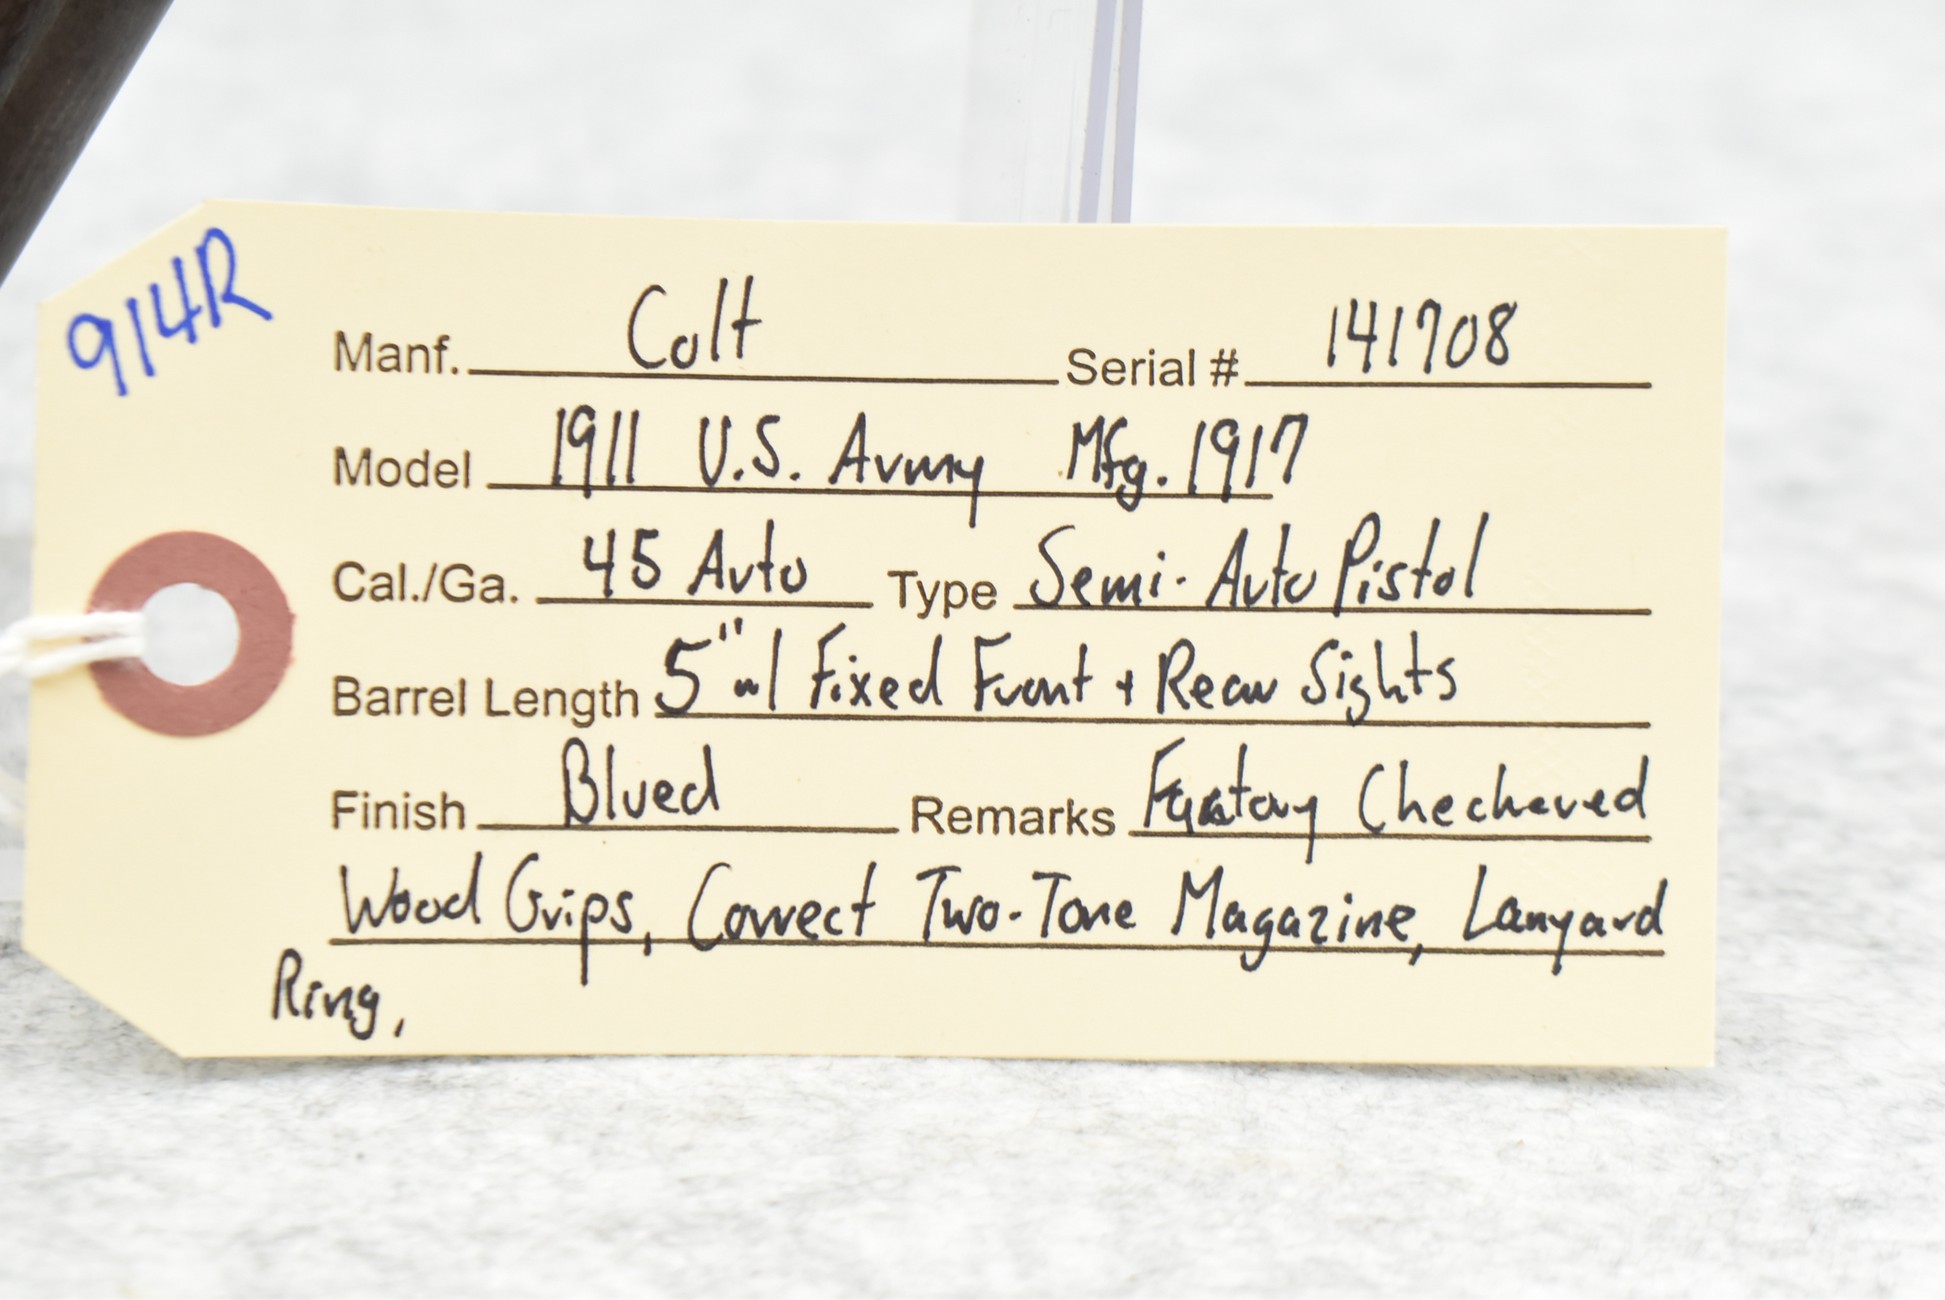 914R
Manf. Colt Serial # 141708
Model 1911 U.S. Army Mfg. 1917
Cal./Ga. 45 Auto Type Semi-Auto Pistol
Barrel Length 5" w/ Fixed Front + Rear Sights
Finish Blued Remarks Factory Checkered
Wood Grips, Correct Two-Tone Magazine, Lanyard
Ring,